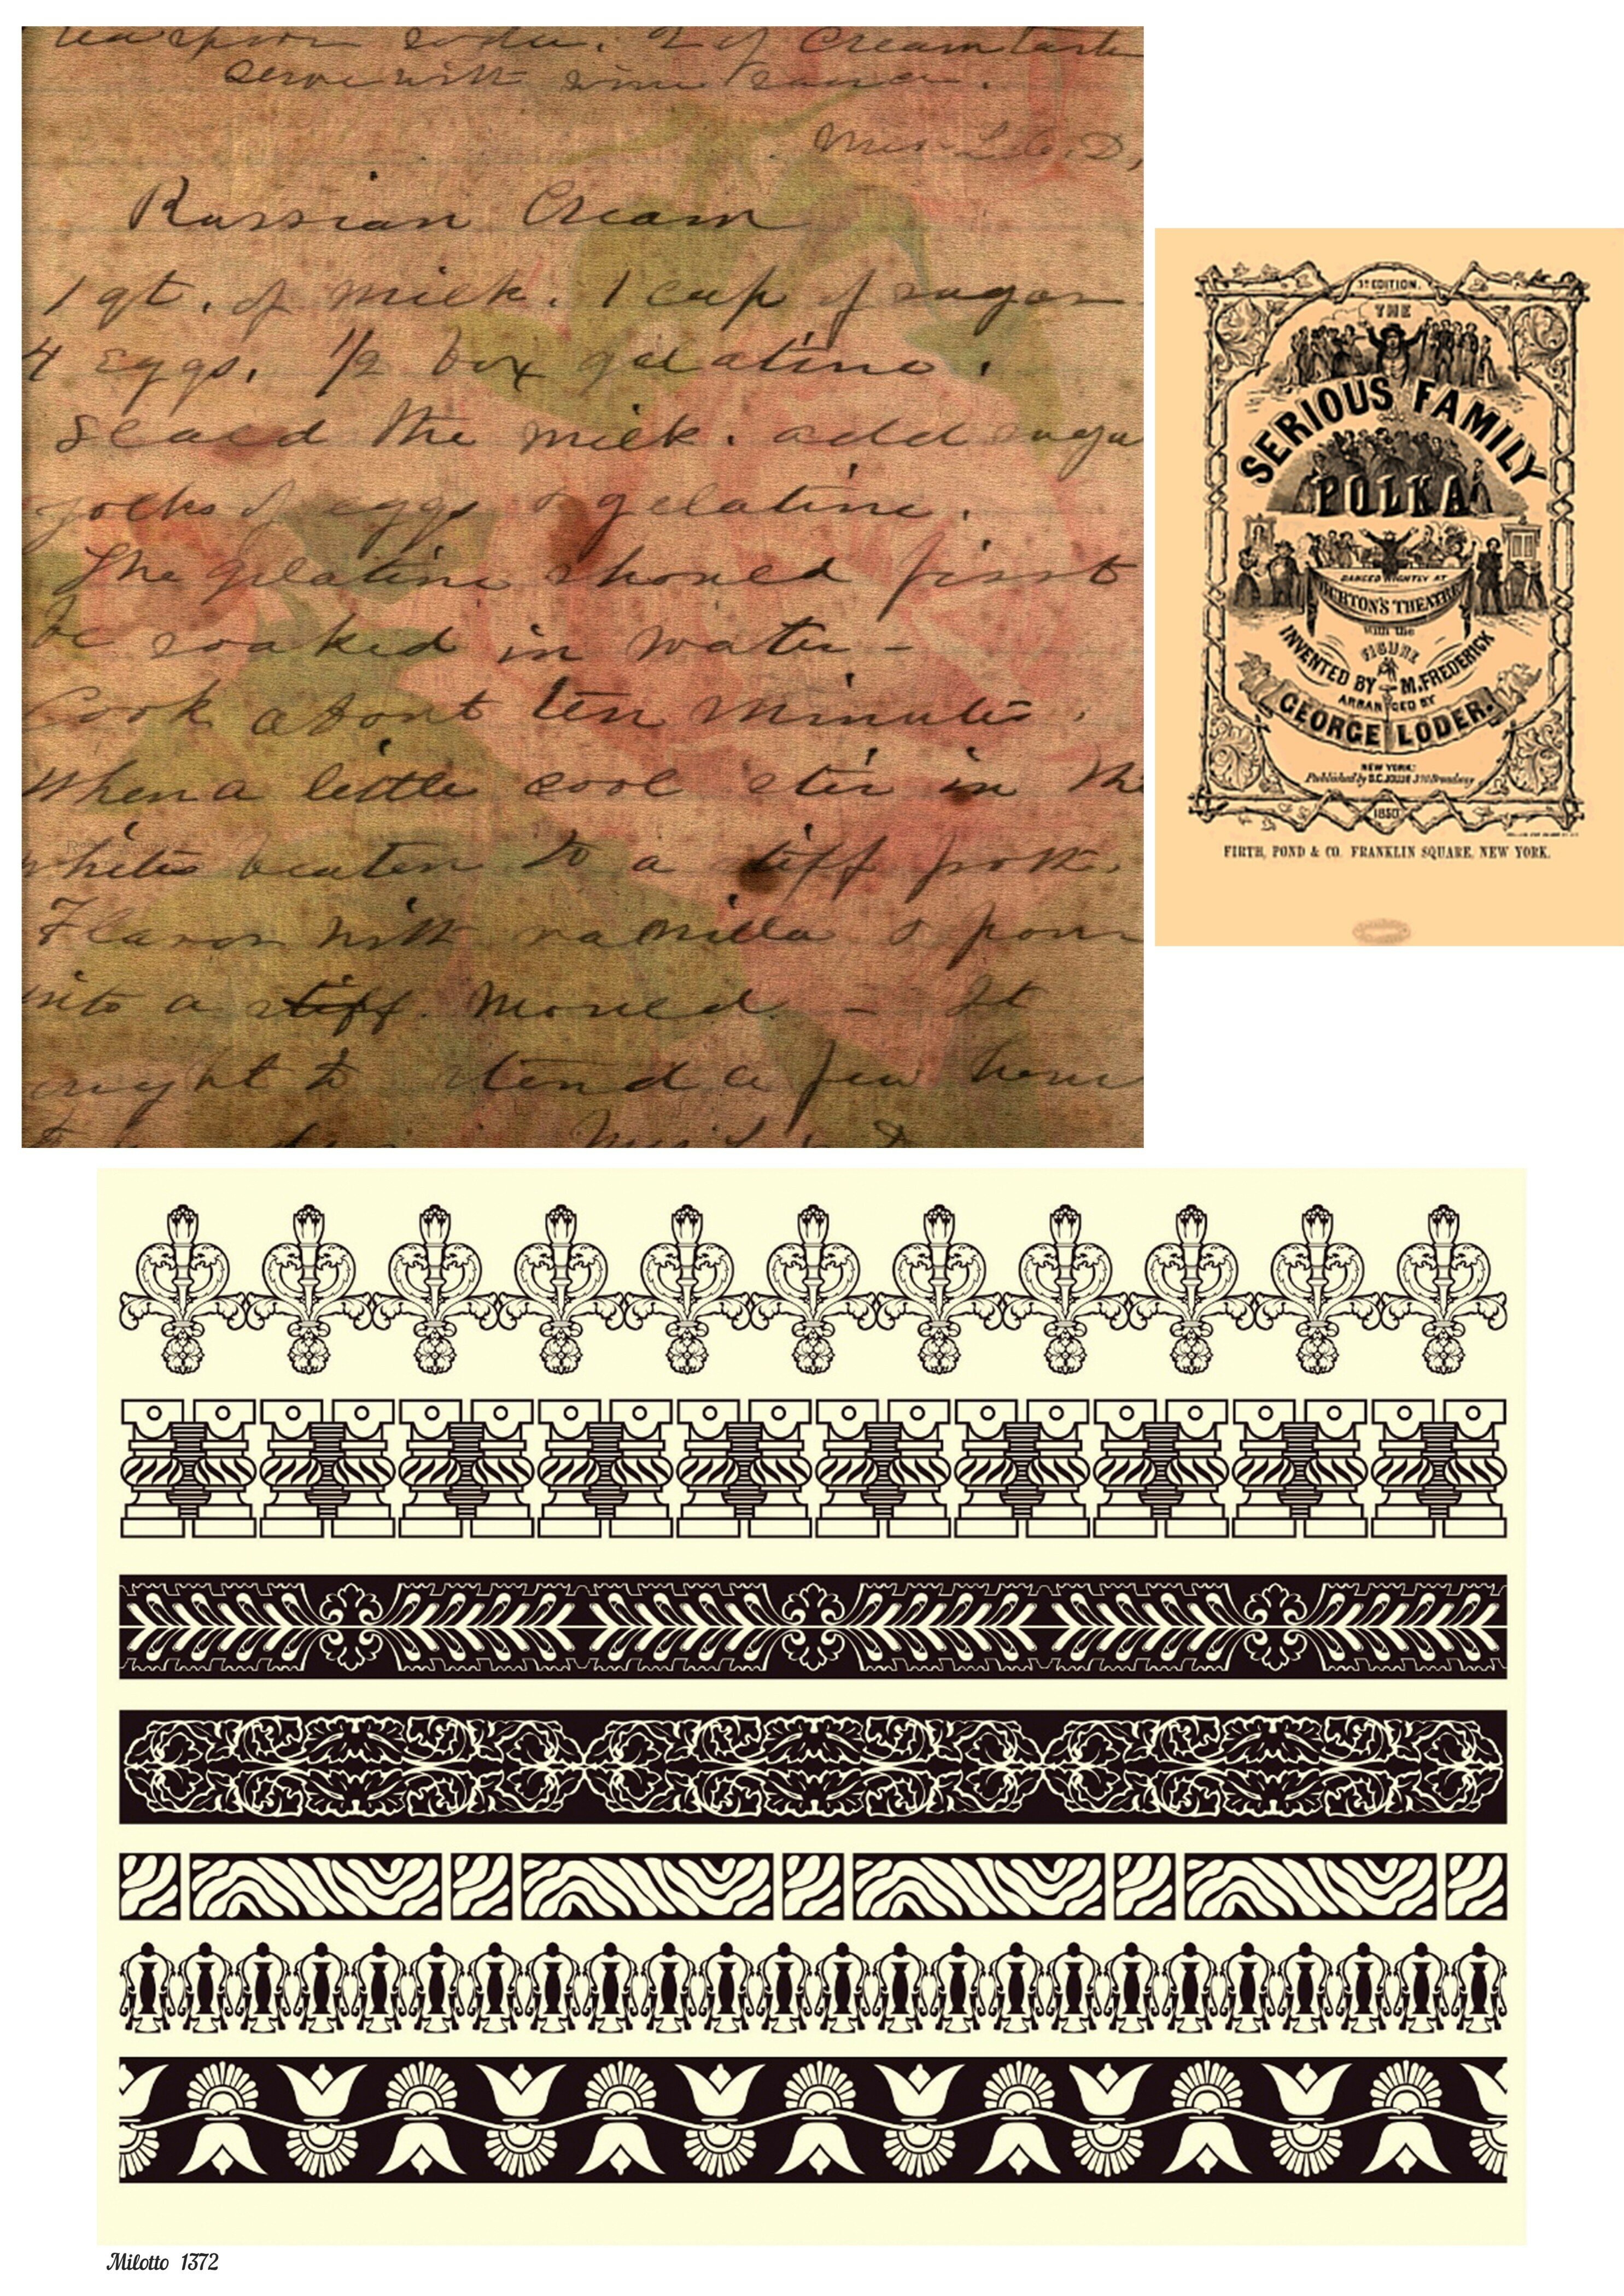 teaspoon soda. 2 of Cream tart
serve with wine sauce.
Russian Cream
1 qt. of milk. 1 cup of sugar
4 eggs. 1/2 box gelatine.
Scald the milk. add suga
yolks of eggs & gelatine.
The gelatine should first
be soaked in water -
Cook about ten minutes.
When a little cool stir in the
whites beaten to a stiff froth.
Flavor with vanilla & pour
into a stiff. Mould. - It
ought to stend a few hour
1st EDITION.
THE
SERIOUS FAMILY
POLKA
DANCED NIGHTLY AT
BURTON'S THEATRE
with the
FIGURE
INVENTED BY M. FREDERICK
ARRANGED BY
GEORGE LODER.
NEW YORK:
Published by Broadway
1850
FIRTH, POND & CO. FRANKLIN SQUARE, NEW YORK.
Milotto 1372